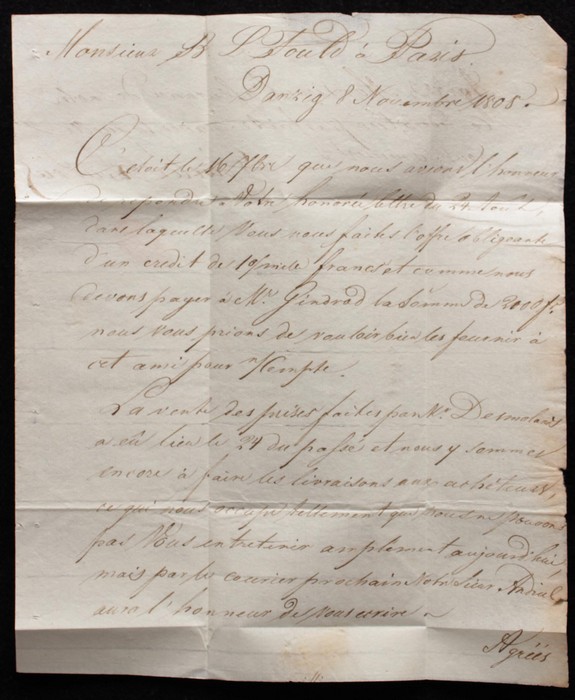 Monsieur B L Fould à Paris.
Danzig 8 Novembre 1808.
C'etoit le 16 7bre que nous avions l'honneur
de repondre à Votre honorée lettre du 24 Aout,
dans laquelle Vous nous faites l'offre obligeante
d'un credit de mille francs et comme nous
devons payer à Mr. Gindrad la somme de 2000 f.
nous vous prions de vouloir bien les fournir à
cet ami pour n/Compte.
La vente des prises faites par Mr.
a eû lieu le 24 du passé et nous y sommes
encore à faire les livraisons aux acheteurs,
ce qui nous occupe tellement que nous ne pouvons
pas Vous entretenir amplement aujourd'hui
mais par le courier prochain Notre Sieur
aura l'honneur de Vous ecrire.
Agréés